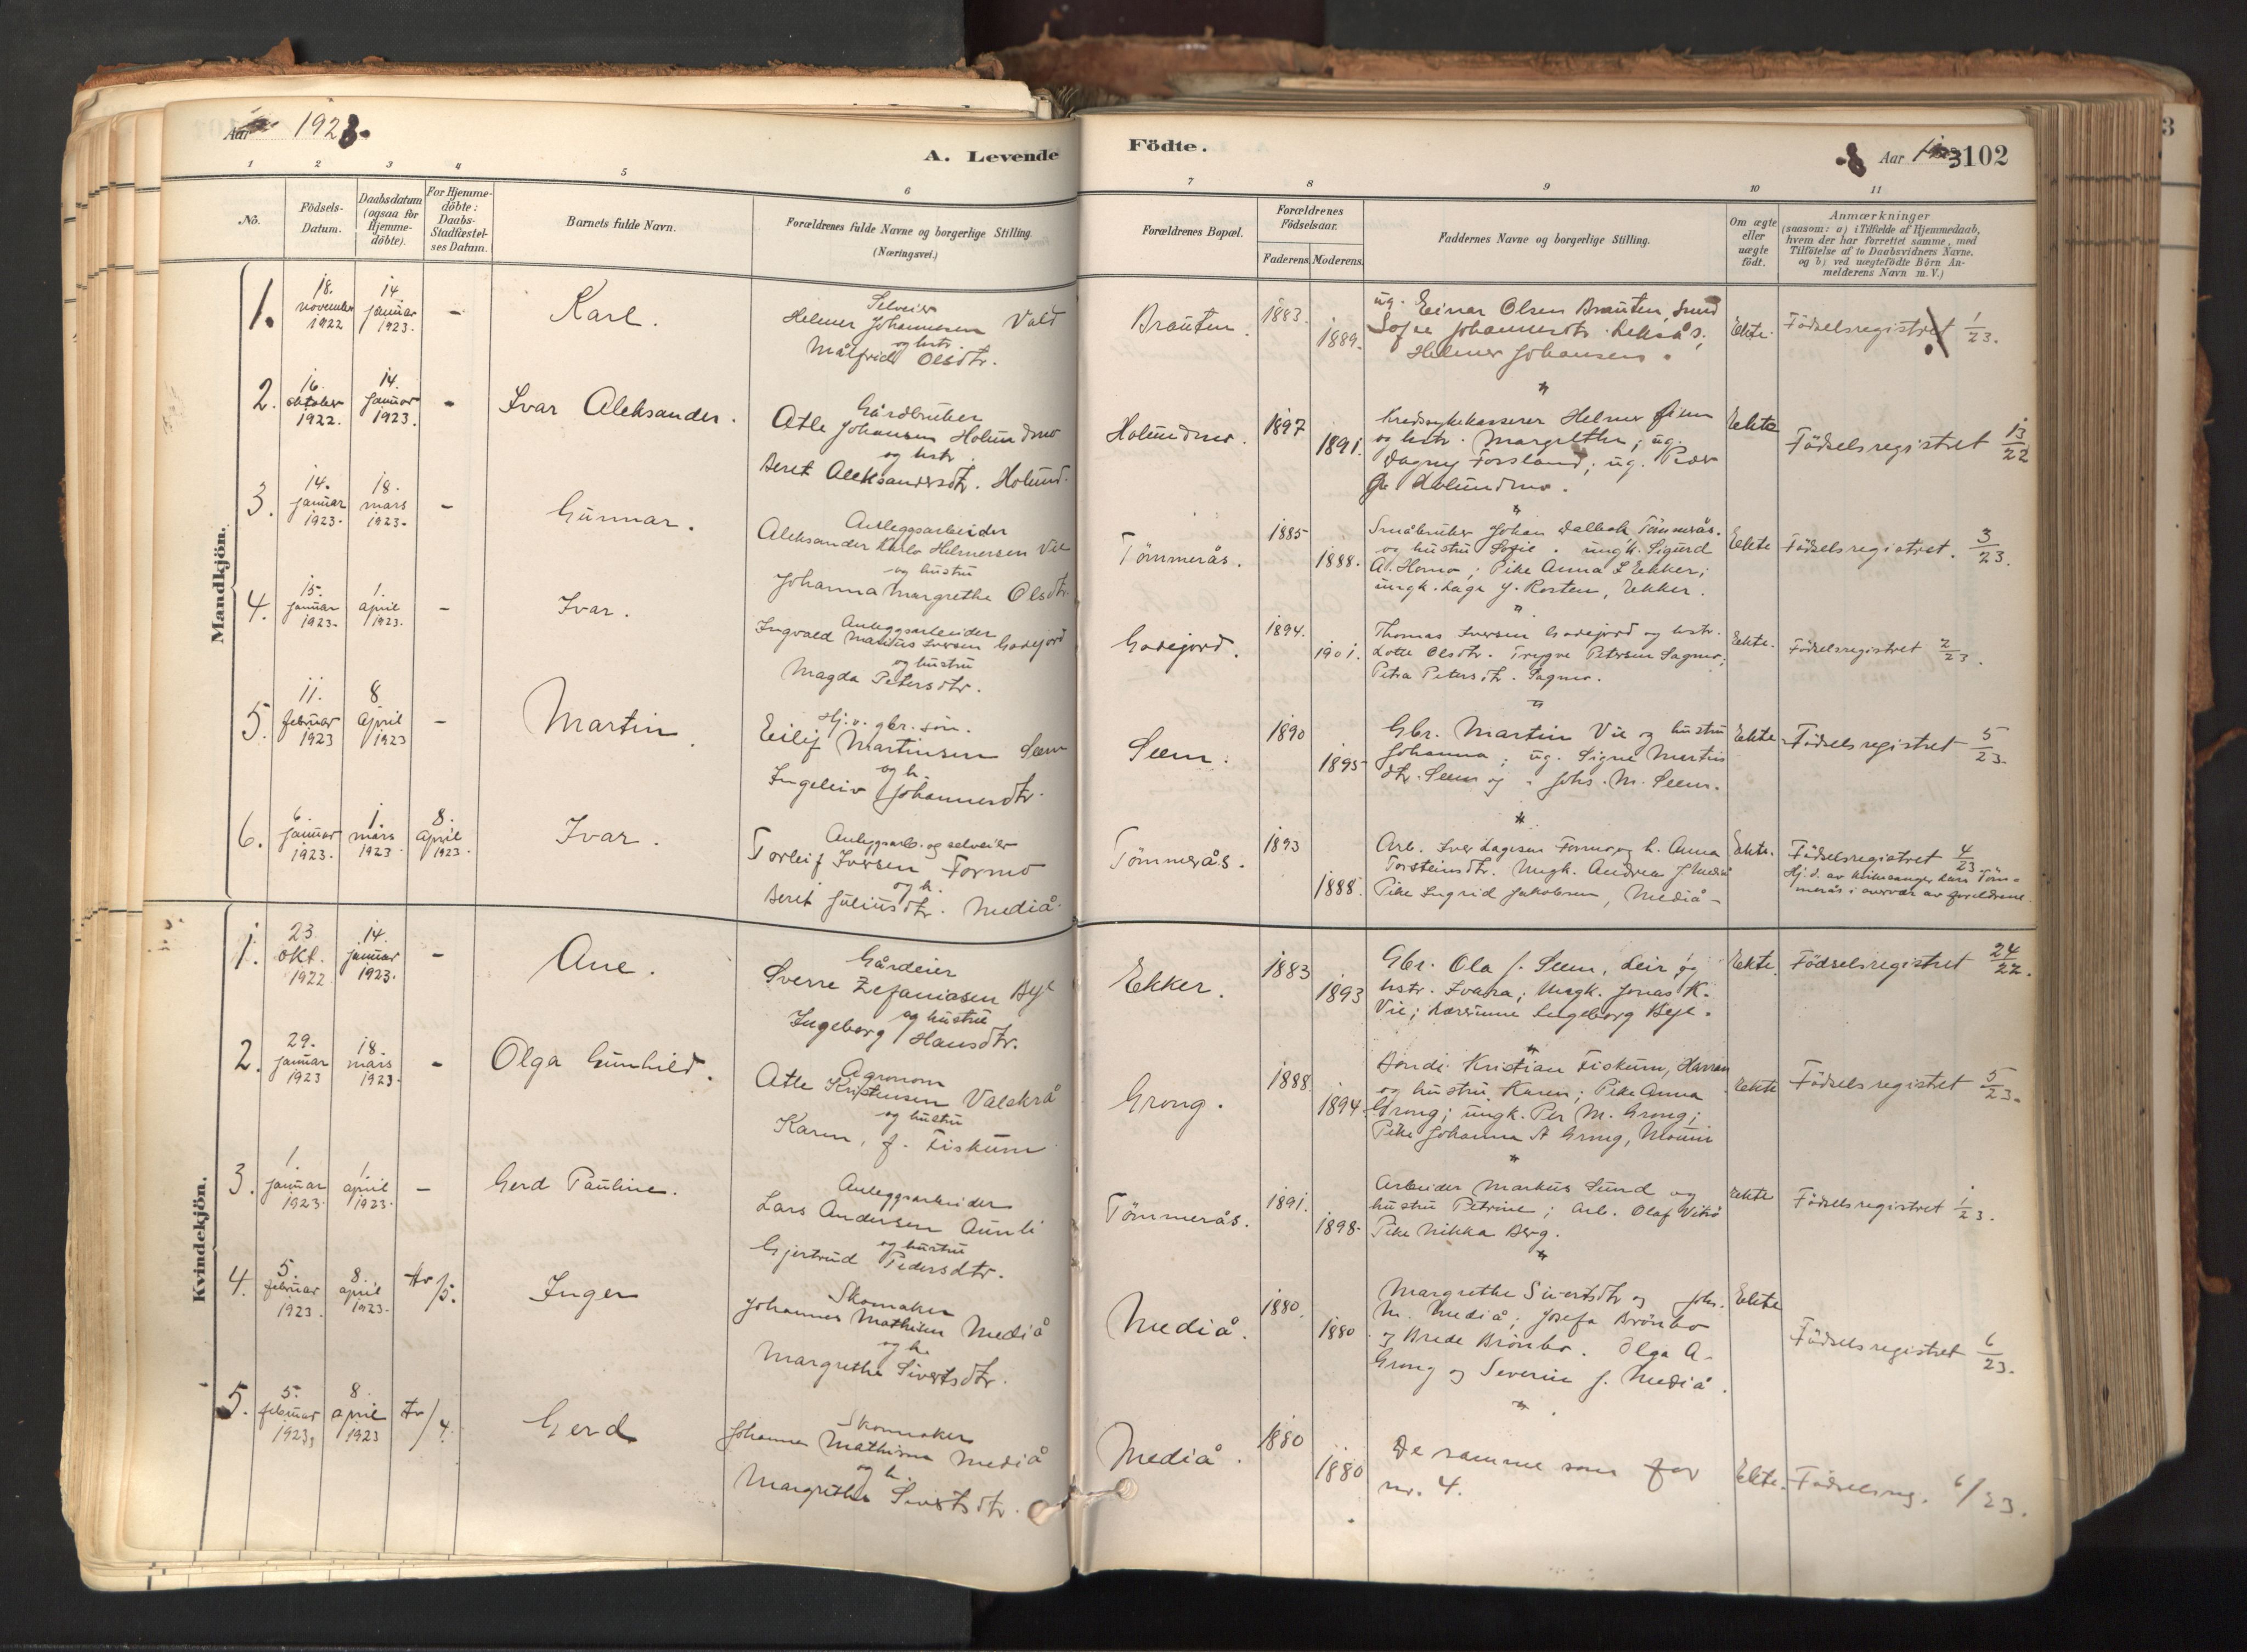 Aar 1923.
A. Levende
1 2 3 4 5 6
No.
Födsels-
Datum.
Daabsdatum
(ogsaa for
Hjemme-
döbte).
For Hjemme-
döbte:
Daabs-
Stadfæstel-
ses Datum.
Barnets fulde Navn.
Forældrenes fulde Navne og borgerlige Stilling.
(Næringsvei.)
Mandkjön.
1.
18.
november
1922
14.
januar
1923.
-
Karl.
Selveier
Helmer Johannesen Vald
og hstr.
Målfrid Olsdtr.
2.
16.
oktober
1922.
14.
januar
1923.
-
Ivar Aleksander.
Gårdbruker
Atle Johansen Holundmo
og hstr.
Beret Aleksandersdtr. Holund.
3.
14.
januar
1923.
18.
mars
1923.
-
Gunnar.
Anleggsarbeider
Aleksander Karlo Helmersen Vie
og hustru
Johanna Margrethe Olsdtr.
4.
15.
januar
1923.
1.
april
1923.
-
Ivar.
Anleggsarbeider
Ingvald Marius Iversen Godejord
og hustru
Magda Petersdtr.
5.
11.
februar
1923
8
april
1923
-
Martin.
Hj.v. gbr. søn.
Eilif Martinsen Seem
og h.
Ingeleiv Johannesdtr.
6.
6.
januar
1923.
1.
mars
1923.
8.
april
1923.
Ivar.
Anleggsarb. og selveier
Torleif Iversen Formo
og h.
Beret Juliusdtr. Mediå.
Kvindekjön.
1.
23
okt.
1922
14.
januar
1923.
-
Ane.
Gårdeier
Sverre Zefaniasen Bye
og hustru
Ingeborg Hansdtr.
2.
29.
januar
1923
18.
mars
1923.
-
Olga Gunhild.
Agronom
Atle Kristensen Valskrå
og hustru
Karen, f. Fiskum
3.
1.
januar
1923.
1.
april
1923.
-
Gerd Pauline.
Anleggsarbeider
Lars Andersen Aunli
og hustru
Gjertrud Pedersdtr.
4.
5.
februar
1923.
8.
april
1923.
/5.
Inger
Skomaker
Johannes Mathisen Mediå
og h.
Margrethe Sivertsdtr.
5.
5.
februar
1923,
8.
april
1923
/4.
Gerd
Skomaker
Johannes Mathisen Mediå
og h.
Margrethe Sivertsdtr.
Födte.
Aar 1923 102
7 8 9 10 11
Forældrenes Bopæl.
Forældrenes
Födselsaar.
Faderens. Moderens.
Faddernes Navne og borgerlige Stilling.
Om ægte
eller
uægte
födt.
Anmærkninger
(saasom: a) i Tilfælde af Hjemmedaab,
hvem der har forrettet samme, med
Tilföielse af to Daabsvidners Navne,
og b) ved uægtefödte Börn An-
melderens Navn m. V.)
Brauten.
1883.
1889.
ug. Einar Olsen Brauten, Lund
Sofie Johannesdtr.
Helmer Johansen.
Ekte.
Födselsregistret 1/23.
Holundmo.
1897
1891.
Kredssykekasserer Helmer
og hstr. Margrethe; ug.
Dagny Forsland; ug. Peder
Holundmo.
Ekte
Födselsregistret 13/22
Tömmerås.
1885
1888.
Småbruker Johan Dalbak Tömmerås.
og hustru Sofie. ungk. Sigurd
A. Homo; Pike Anna L Ekker;
ungk. Lage J. Rosten, Ekker.
Ekte
Födselsregistret. 3/23.
Godejord.
1894.
1901.
Thomas Iversen Godejord og hstr.
Lotte Olsdtr. Trygve Petersen Sagmo;
Petra Petersdtr. Sagmo.
Ekte.
Födselsregistret 2/23.
Seem.
1890
1895
Gbr. Martin Vie og hustru
Johanna; ug. Signe Martins
dtr. Seem og Johs. M. Seem.
Ekte
Födselsregistret 5/23.
Tömmerås.
1893
1888.
Arb. Iver Lagesen Formo og h. Anna
Torsteinsdtr. Ungk. Andreas J Mediå
Pike Ingrid Jakobsen, Mediå
Ekte.
Födselsregistret 4/23.
Hj.d. av klikesanger Lars Töm-
merås i nærvær av forældrene.
Ekker.
1883
1893
Gbr. Ola J. Seem, Leir og
hstr. Ivara; Ungk. Jonas K.
Vie; Lærerinne Ingeborg Bye.
Ekte.
Födselsregistret 24/22.
Grong.
1888.
1894.
Bonde Kristian Fiskum, Harran
og hustru Karen; Pike Anna
Grong; ungk. Per M. Grong;
Pike Johanna A Grong,
Ekte
Födselsregistret 5/23.
Tömmerås.
1891.
1898.
Arbeider Markus Lund og
hustru Petrine; Arb. Olaf
Pike Nikka Berg.
Ekte
Födselsregistret 1/23.
Mediå.
1880.
1880
Margrethe Sivertsdtr og Johs.
M. Mediå; Josefa Brönbo
og Brede Brönbo. Olga A.
Grong og Severin J. Mediå.
Ekte
Födselsregistret 6/23.
Mediå.
1880
1880
De samme som for
nr. 4.
Ekte.
Födselsreg. 6/23.